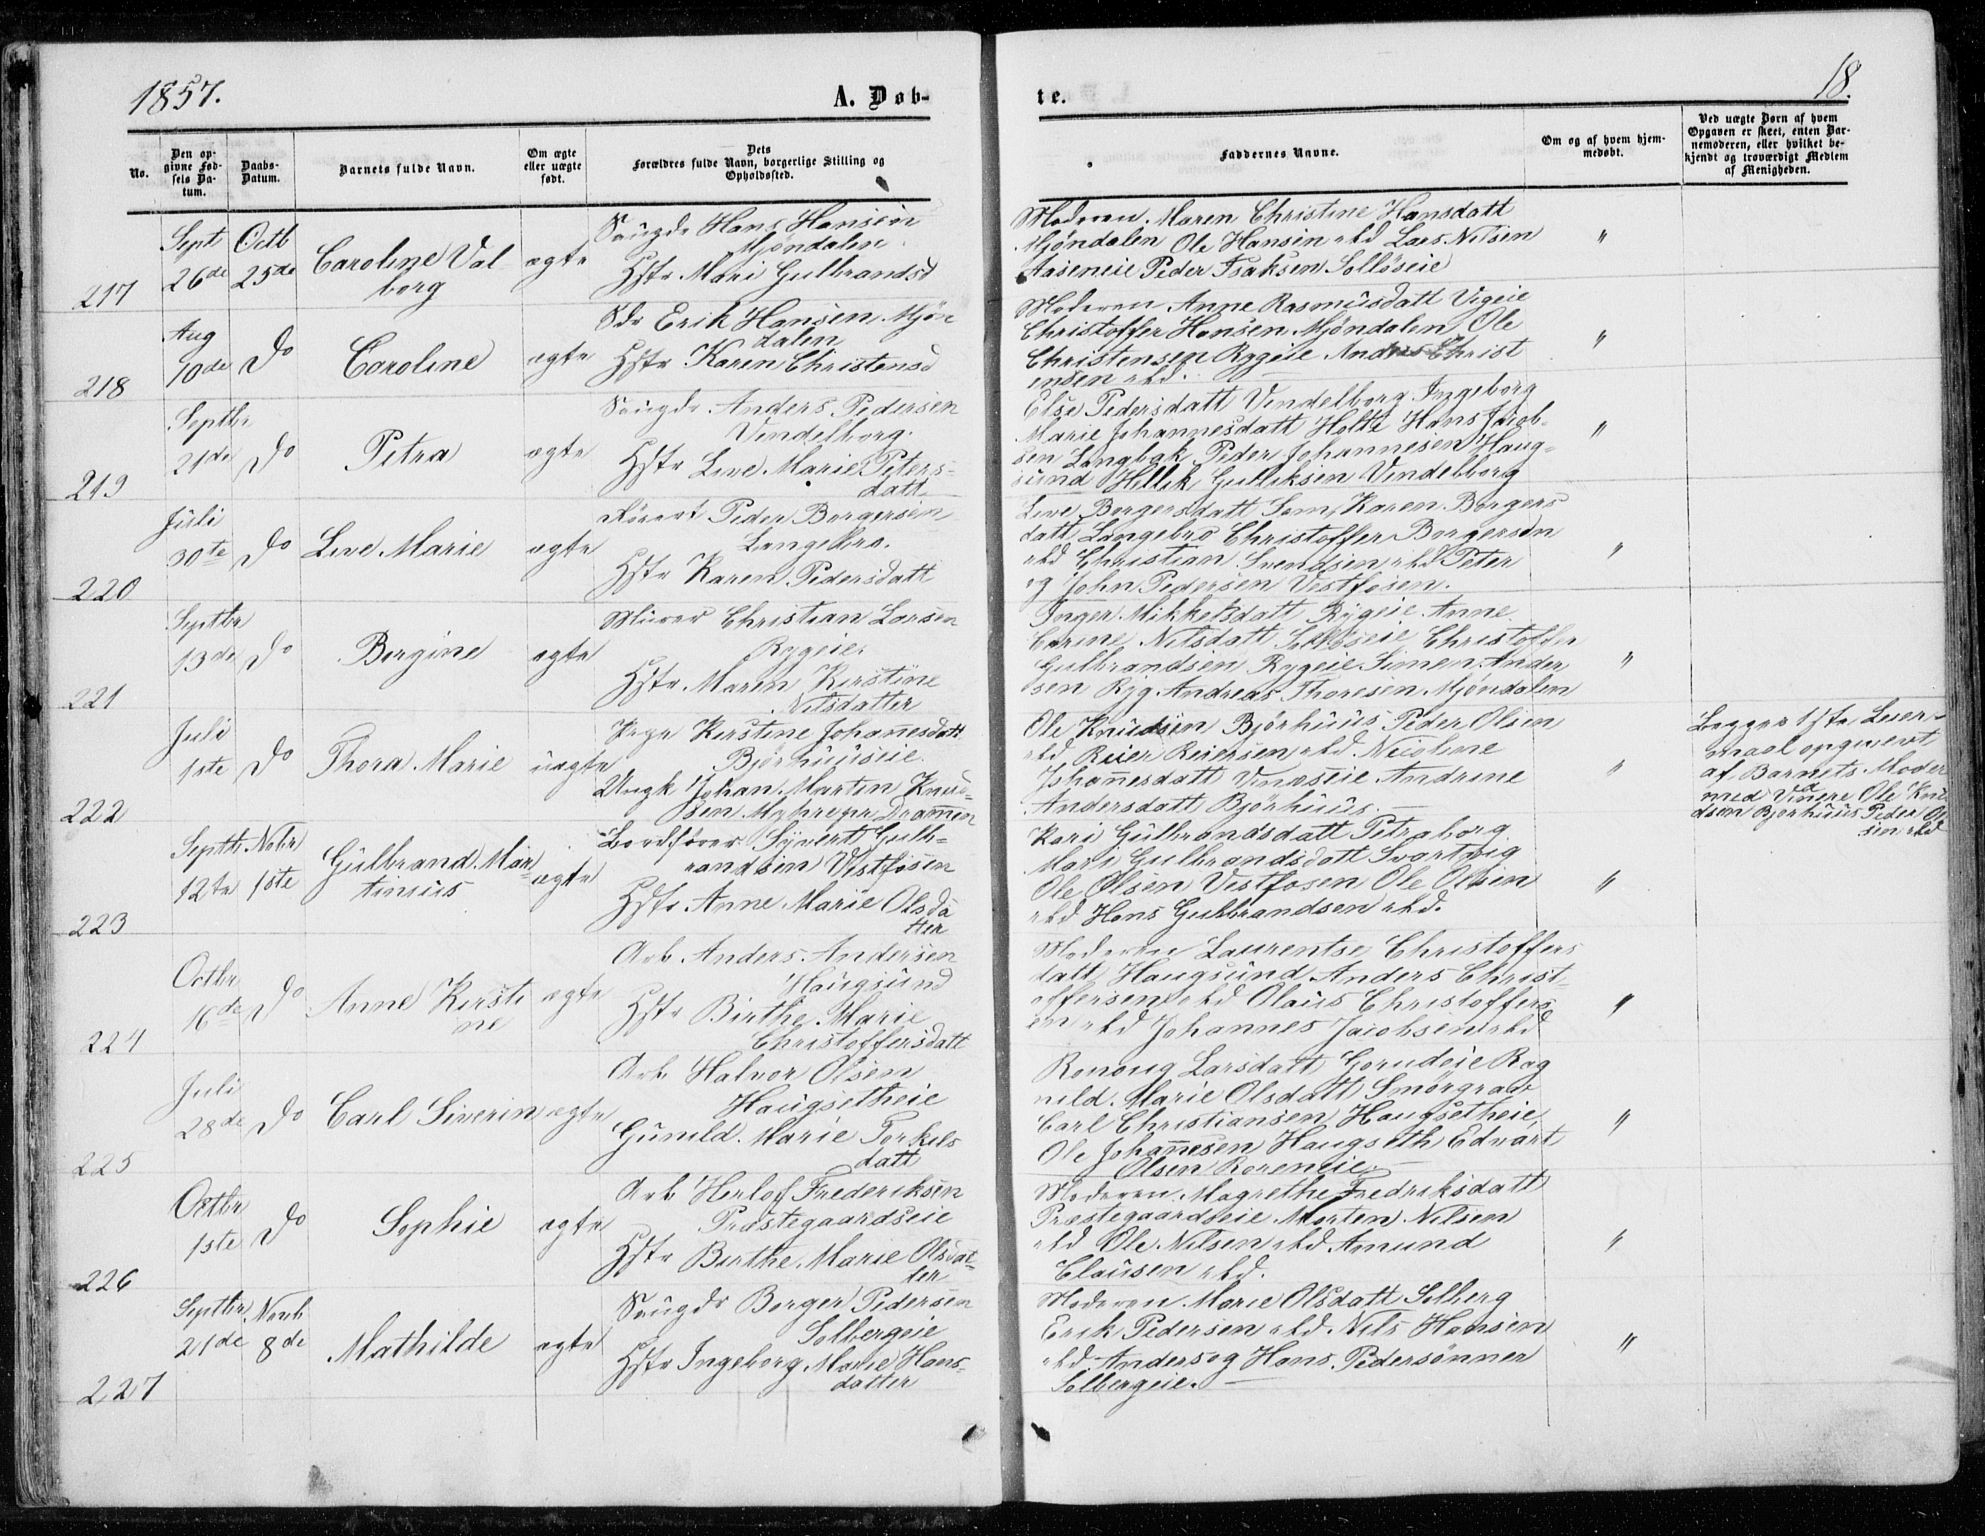 1857.
A. Døb-
te.
18.
No.
Den op-
givne Fød-
sels Da-
tum.
Daabs-
Datum.
Barnets fulde Navn.
Om ægte
eller uægte
født.
Dets
Forældres fulde Navn, borgerlige Stilling og
Opholdssted.
Faddernes Navne.
Om og af hvem hjem-
medøbt.
Ved uægte Børn af hvem
Opgaven er skeet, enten Bar-
nemoderen, eller hvilket be-
kjendt og troværdigt Medlem
af Menigheden.
217
Sept
26de
Octb
25de
Caroline Val
borg
ægte
Saugdr Hans Hansen
Mjøndalen
Hstr Mari Gulbrandsd
Moderen Maren Christine Hansdatt
Mjøndalen Ole Hansen ibd Lars Nilsen
Aaseneie Peder Isaksen Solløseie
"
218
Aug
10de
Do
Caroline
ægte
Sdr Erik Hansen Mjøn
dalen
Hstr Karen Christensd
Moderen Anne Rasmusdatt Vegeie
Christoffer Hansen Mjøndalen Ole
Christensen Rygeie Anders Christ
ensen ibd.
"
219
Septbr
21de
Do
Petra
ægte
Saugdr Anders Pedersen
Vendelborg.
Hstr Live Marie Peters-
datt
Else Pedersdatt Vendelborg Ingeborg
Marie Johannesdatt Holte Hans Jacob-
sen Langbak Peder Johannesen Haug-
sund Hellik Gulliksen Vendelborg
"
220
Juli
30te
Do
Live Marie
ægte
Peder Borgersen
Langebro.
Hstr Karen Pedersdatt
Live Borgersdatt Sem, Karen Borgers
datt Langebro Christoffer Borgersen
ibd Christian Svendsen ibd Peter
og John Pedersen Vestfosen.
"
221
Septbr
13de
Do
Borgine
ægte
Murer Christian Larsen
Rygeie
Hstr Maren Kirstine
Nilsdatter
Inger Mikkelsdatt Rygeie Anne
Carine Nilsdatt Solløseie Christoffer
Gulbrandsen Rygeie Simen Ander
sen Ryg Andreas Thoresen Mjøndalen
"
222
Juli
1ste
Do
Thora Marie
uægte
Pige Kirstine Johanesdatt
Bjørhuuseie.
Ungk Johan Martin Knud-
sen Dramen
Ole Knudsen Bjørhuus Peder Olsen
ibd Reier Reiersen ibd. Nicoline
Johanesdatt Vinæseie Andrine
Andersdatt Bjørhuus.
"
Begges 1ste Leier-
maal opgivent
af Barnets Moder
med Vidnere Ole Knu
dsen Bjørhuus Peder Ol
sen ibd
223
Septb
12te
Nobr
1ste
Gulbrand Mar
tinius
ægte
Syvert Gulb-
randsen Vestfosen
Hstr Anne Marie Olsda
tter
Kari Gulbrandsdatt Petraborg
Mari Gulbrandsdatt Svartvig
Ole Olsen Vestfosen Ole Olsen
ibd Hans Gulbrandsen ibd.
"
224
Octbr
16de
Do
Anne Kirsti
ne
ægte
Arb. Anders Andersen
Haugsund
Hstr Birthe Marie
Christoffersdatt
Moderen Laurentse Christoffers
datt Haugsund Anders Christ-
offersen ibd Olaus Christoffers
en ibd Johannes Jacobsen ibd
"
225
Juli
28de
Do
Carl Siverin
ægte
Arb Halvor Olsen
Haugsetheie
Gunild Marie Torkils
datt
Ronoug Larsdatt Gorudeie Rag
nild Marie Olsdatt Smørgrav
Carl Christiansen Haugsetheie,
Ole Johanesen Haugseth Edvart
Olsen Roreneie.
"
226
Octbr
1ste
Do
Sophie
ægte
Arb Herlof Frederiksen
Præstegaardseie
Hstr Birthe Marie Olsdat-
ter
Moderen Magrethe Fredriksdatt
Præstegaardseie Morten Nilsen
ibd Ole Nilsen ibd Amund
Clausen ibd.
"
227
Septbr
21de
Novb
8de
Mathilde
ægte
Saugdr Borger Pedersen
Solbergeie
Hstr Ingeborg Marie Hans-
datter
Moderen Marie Olsdatt Solberg
Erik Pedersen ibd Nils Hansen
ibd Anders og Hans Pedersønner
Solbergeie.
"